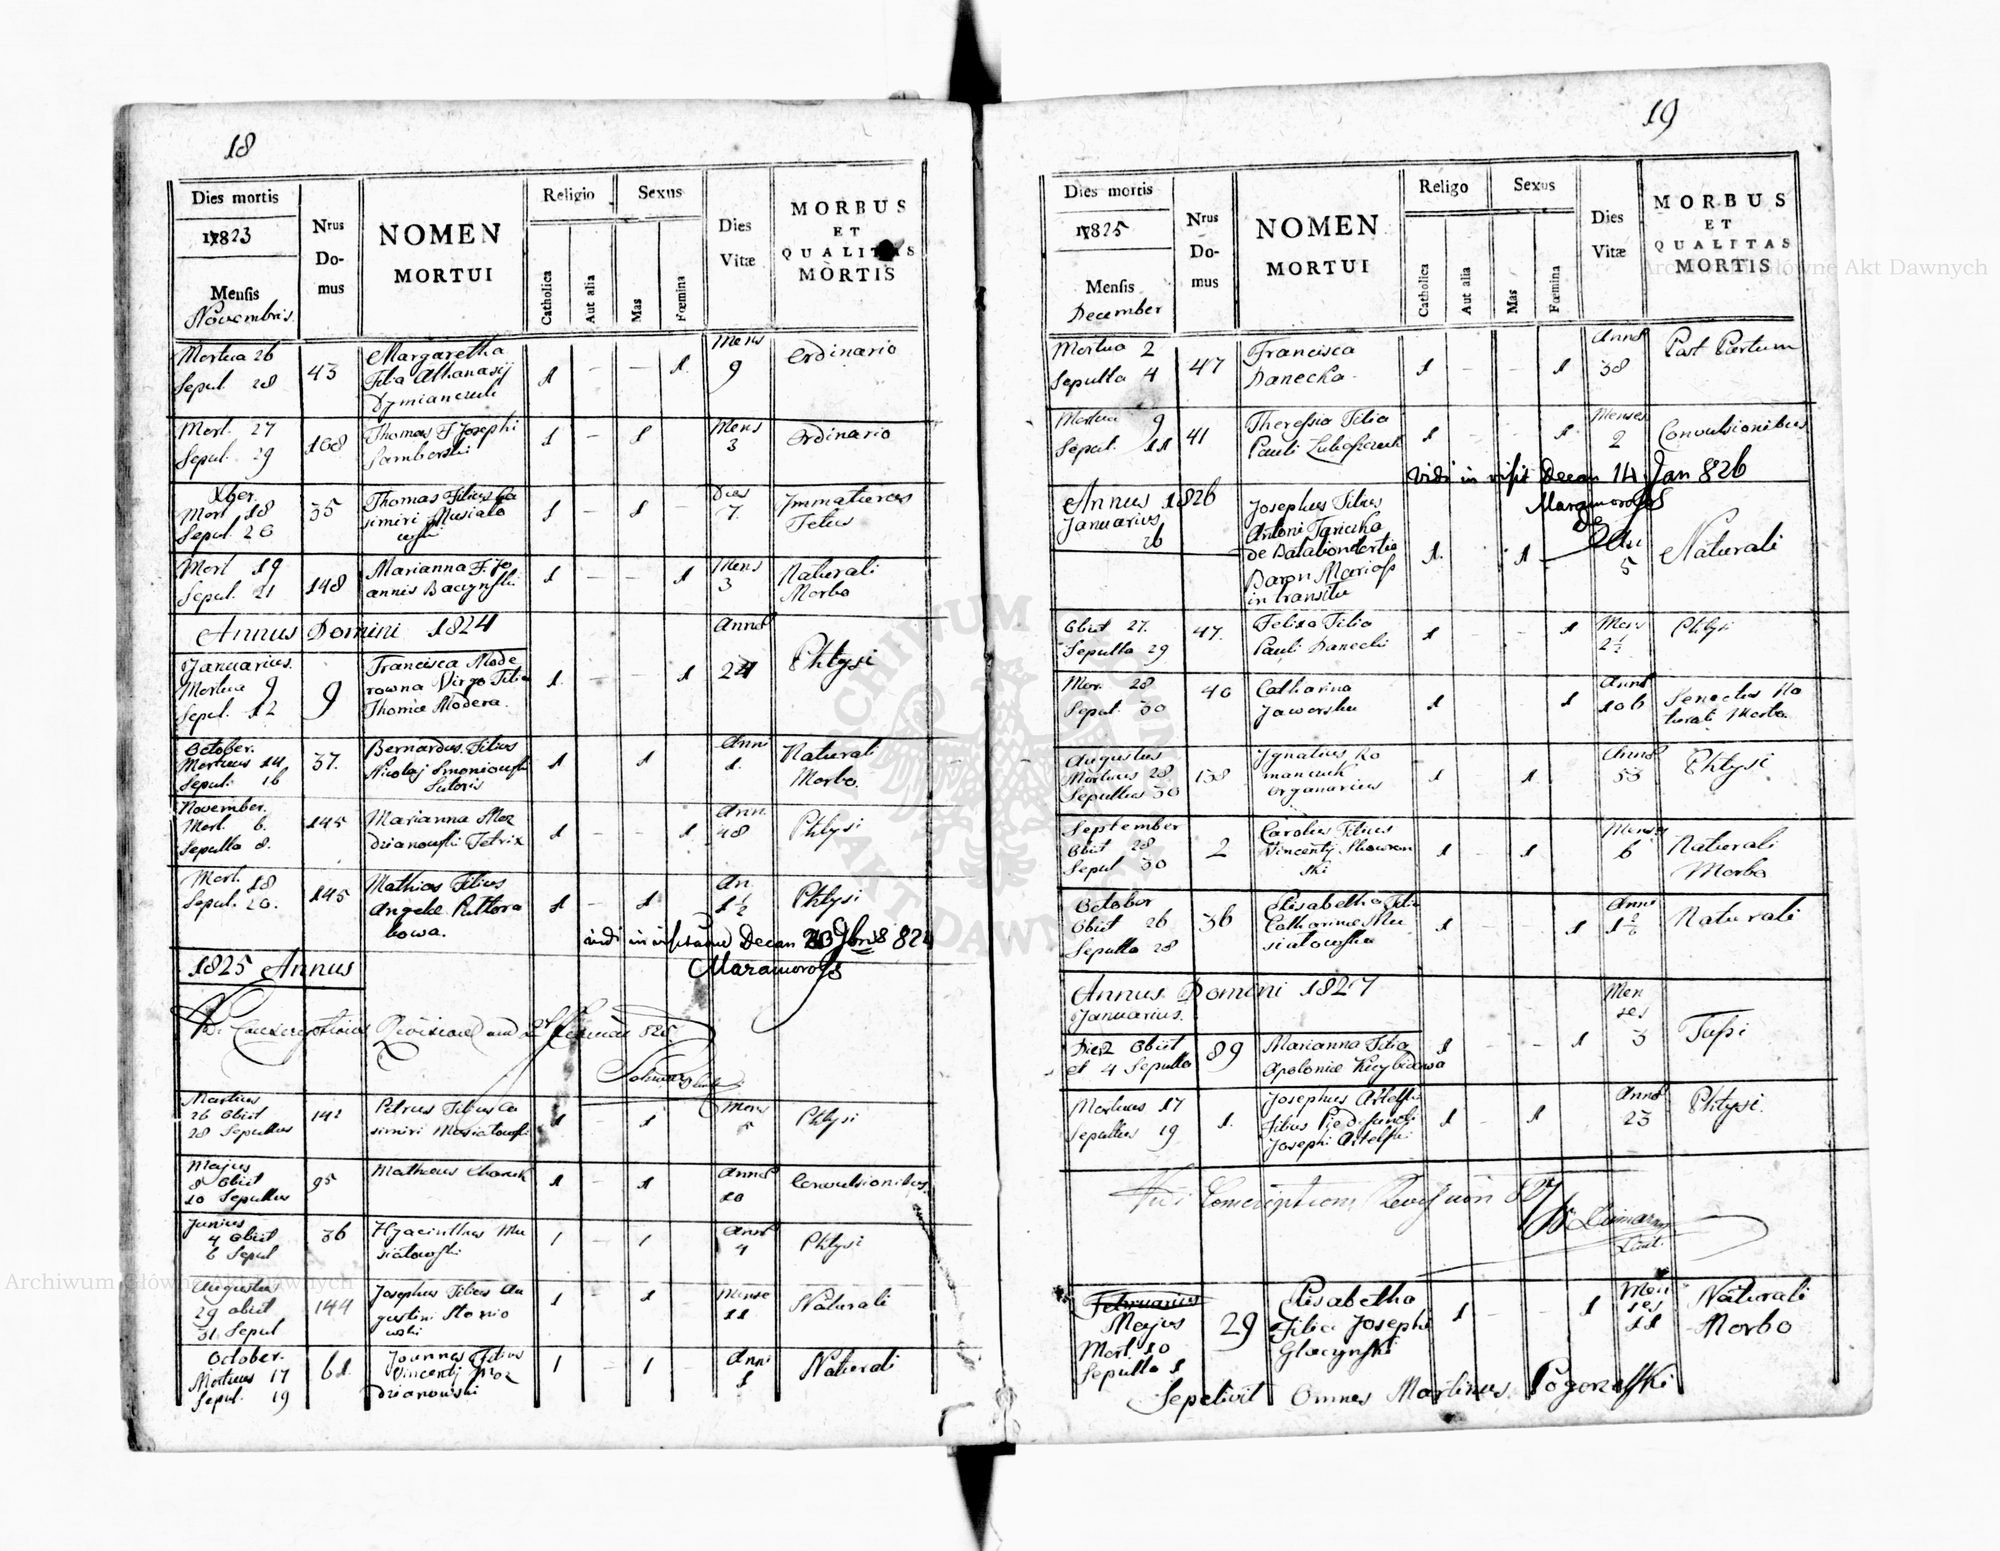 18
Dies mortis
1823
Mensis
Novembris
Nrus
Do-
mus
NOMEN
MORTUI
Religio
Catholica
Aut alia
Sexus
Mas
Fœmina
Dies
Vitæ
MORBUS
ET
QUALITAS
MORTIS
Mortua 26
Sepul. 28
43
Margaretha
Filia Athanasij
1 – – 1
Mens
9
Ordinario
Mort. 27
Sepul. 29
108
Thomas F. Josephi
Samberski
1 – 1
Mens
3
Ordinario
Xber.
Mort 18
Sepul. 20
35
Thomas Filius Ca
simiri Musialo
1 – 1
Dies
7.
Immaturus
Fetus
Mort 19
Sepul. 21
148
Marianna F. Jo
annis Baczynski
1 – – 1
Mens
3
Naturali
Morbo
Annus Domini 1824
Januarius.
Mortua 9
Sepul. 12
9
Francisca Mode
rowna Virgo Filia
Thomæ Modera.
1. – – 1
Annor
24
Phtysi
October.
Mortuus 14
Sepul: 16
37.
Bernardus Filius
Nicolaj
Sutoris
1 1
Anni
1.
Naturali
Morbo.
November.
Mort. 6.
Sepulta 8.
145
Marianna Moz
dzianowski
1 – – 1
Ann.
48
Phtysi
Mort. 18
Sepul. 20.
145
Mathias Filius
Angelæ Puttora
kowa.
1 – 1
An.
1 1/2
Phtysi
vidi in visitatione Decan 20 9bris 824
Maramoross
1825 Annus
Martius
26 Obiit
28 Sepultus
142
Petrus Filius Ca
simiri
1 – 1
Mens
5
Phtysi
Majus
8 Obiit
10 Sepultus
95
Matheus
1 – 1
Annor
20
Convulsionibus
Junius
4 Obiit
6 Sepul
36
Hyacinthus Mu
siatowski
1 – 1
Annor
4
Phtysi
Augustus
29 obiit
31 Sepul
144
Josephus Filius Au
gustini Stanio
wski
1 1
Mense
11
Naturali
October.
Mortuus 17
Sepul. 19
61
Joannes Filius
Vincentij Moz
dzianowski
1 – 1
Anni
1
Naturali
19
Dies mortis
1825
Mensis
December
Nrus
Do-
mus
NOMEN
MORTUI
Religo
Catholica
Aut alia
Sexus
Mas
Fœmina
Dies
Vitæ
MORBUS
ET
QUALITAS
MORTIS
Mortua 2
Sepulta 4
47
Francisca
Danecka
1 – – 1
Annor
38
Post Partum
Mortua 9
Sepul. 11
41
Theressia Filia
Pauli
1 – – 1
Menses
2
Convulsionibus
vidi in visit Decan 14 Jan 826
Maramoross
Annus 1826
Januarius
26
Josephus Filius
Antoni
de
Baron
in transitu
1. 1 –
An
5
Naturali
Obiit 27.
Sepulta 29
47.
Felixa Filia
Pauli Danecki
1 – – 1
Mens
2 1/2
Phtysi
Mor. 28
Sepul. 30
40
Catharina
Jaworska
1 – – 1
Annor
106
Senectus Na
turali Morbo.
Augustus
Mortuus 28
Sepultus 30
138
Ignatius Ro
maniuk
Organarius
1 – 1
Annor
53
Phtysi
September
Obiit 28
Sepul 30
2
Carolus Filius
Vincentij Skowron
ski
1 – 1
Menses
6
Naturali
Morbo
October
Obiit 26
Sepulta 28
36
Elisabetha Filia
Catharinæ Mu
siatowska
1 – – 1
Anni
Naturali
Annus Domini 1827
Januarius.
Die 2 Obiit
et 4 Sepulta
89
Marianna Filia
Apoloniæ
1 – – 1
Men
ses
3
Tussi
Mortuus 17
Sepultus 19
1.
Josephus
Filius
Josephi
1 – 1
Annor
23
Phtysi.
Februarius
Majus
Mort. 10
Sepulta 1
29
Elisabetha
Filia Josephi
Glaczynski
1 – – 1
Men
ses
11
Naturali
Morbo
Sepelivit Omnes Martinus Pogorzelski
Archiwum Główne Akt Dawnych
Archiwum Główne Akt Dawnych
ARCHIWUM GŁÓWNE AKT DAWNYCH